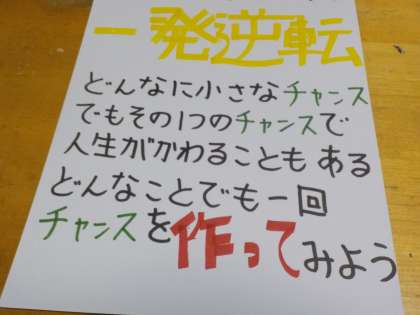 一発逆転
どんなに小さなチャンス
でもその1つのチャンスで
人生がかわることもある
どんなことでも一回
チャンスを作ってみよう